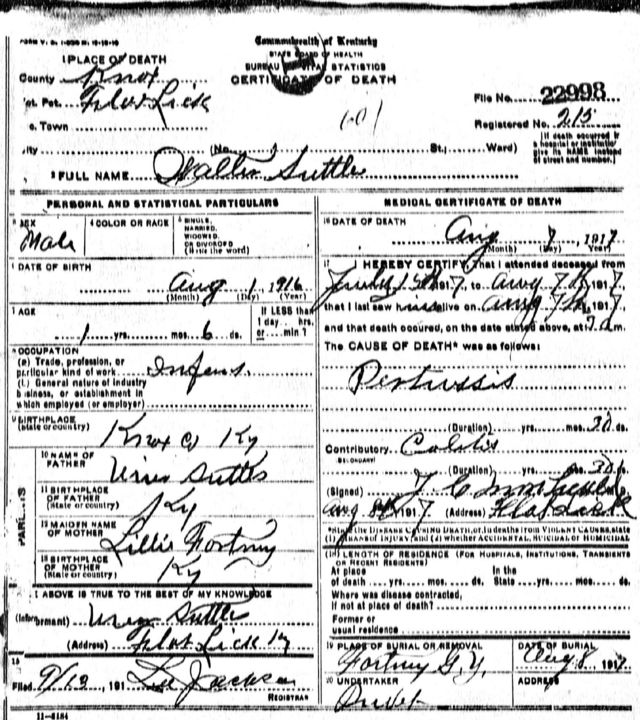 Commonwealth of Kentucky
STATE BOARD OF HEALTH
BUREAU OF VITAL STATISTICS
CERTIFICATE OF DEATH
1 PLACE OF DEATH
County Knox
Vot. Pct. Flat Lick
Town
File No. 22998
Registered No. 215
City (No. St.; Ward)
[If death occurred in a hospital or institution give its NAME instead of street and number.]
2 FULL NAME Walter Suttles
PERSONAL AND STATISTICAL PARTICULARS
3 SEX Male
4 COLOR OR RACE
5 SINGLE, MARRIED, WIDOWED, OR DIVORCED (Write the word)
6 DATE OF BIRTH
Aug 1 1916
(Month) (Day) (Year)
7 AGE
1 yrs. mos. 6 ds.
If LESS than 1 day hrs. or min?
8 OCCUPATION
(a) Trade, profession, or particular kind of work
(b) General nature of industry business, or establishment in which employed (or employer)
9 BIRTHPLACE
(State or country) Knox Co Ky
PARENTS
10 NAME OF FATHER Suttles
11 BIRTHPLACE OF FATHER (State or country) Ky
12 MAIDEN NAME OF MOTHER Lillie Fortney
13 BIRTHPLACE OF MOTHER (State or country) Ky
14 ABOVE IS TRUE TO THE BEST OF MY KNOWLEDGE
(Informant) Suttles
(Address) Flat Lick Ky
15
Filed 9/12, 191 Lee Jackson
REGISTRAR
11-6184
MEDICAL CERTIFICATE OF DEATH
16 DATE OF DEATH
Aug 7 1917
(Month) (Day) (Year)
17 I HEREBY CERTIFY, that I attended deceased from
July 15th, 1917, to Aug 7th, 1917,
that I last saw him alive on Aug 7th, 1917,
and that death occured, on the date stated above, at 7 am.
The CAUSE OF DEATH* was as follows:
Pertussis
(Duration) yrs. mos. 30 ds.
Contributory Colitis
SECONDARY
(Duration) yrs. mos. 30 ds.
(Signed)
Aug 8th, 1917 (Address) Flat Lick
*State the DISEASE CAUSING DEATH, or, in deaths from VIOLENT CAUSES, state
(1) MEANS OF INJURY; and (2) whether ACCIDENTAL, SUICIDAL OR HOMICIDAL
18 LENGTH OF RESIDENCE (FOR HOSPITALS, INSTITUTIONS, TRANSIENTS OR RECENT RESIDENTS)
At place of death yrs. mos. ds. In the State yrs. mos. ds.
Where was disease contracted,
if not at place of death?
Former or
usual residence
19 PLACE OF BURIAL OR REMOVAL
Fortney G.Y.
DATE OF BURIAL
Aug 8 1917
20 UNDERTAKER
ADDRESS